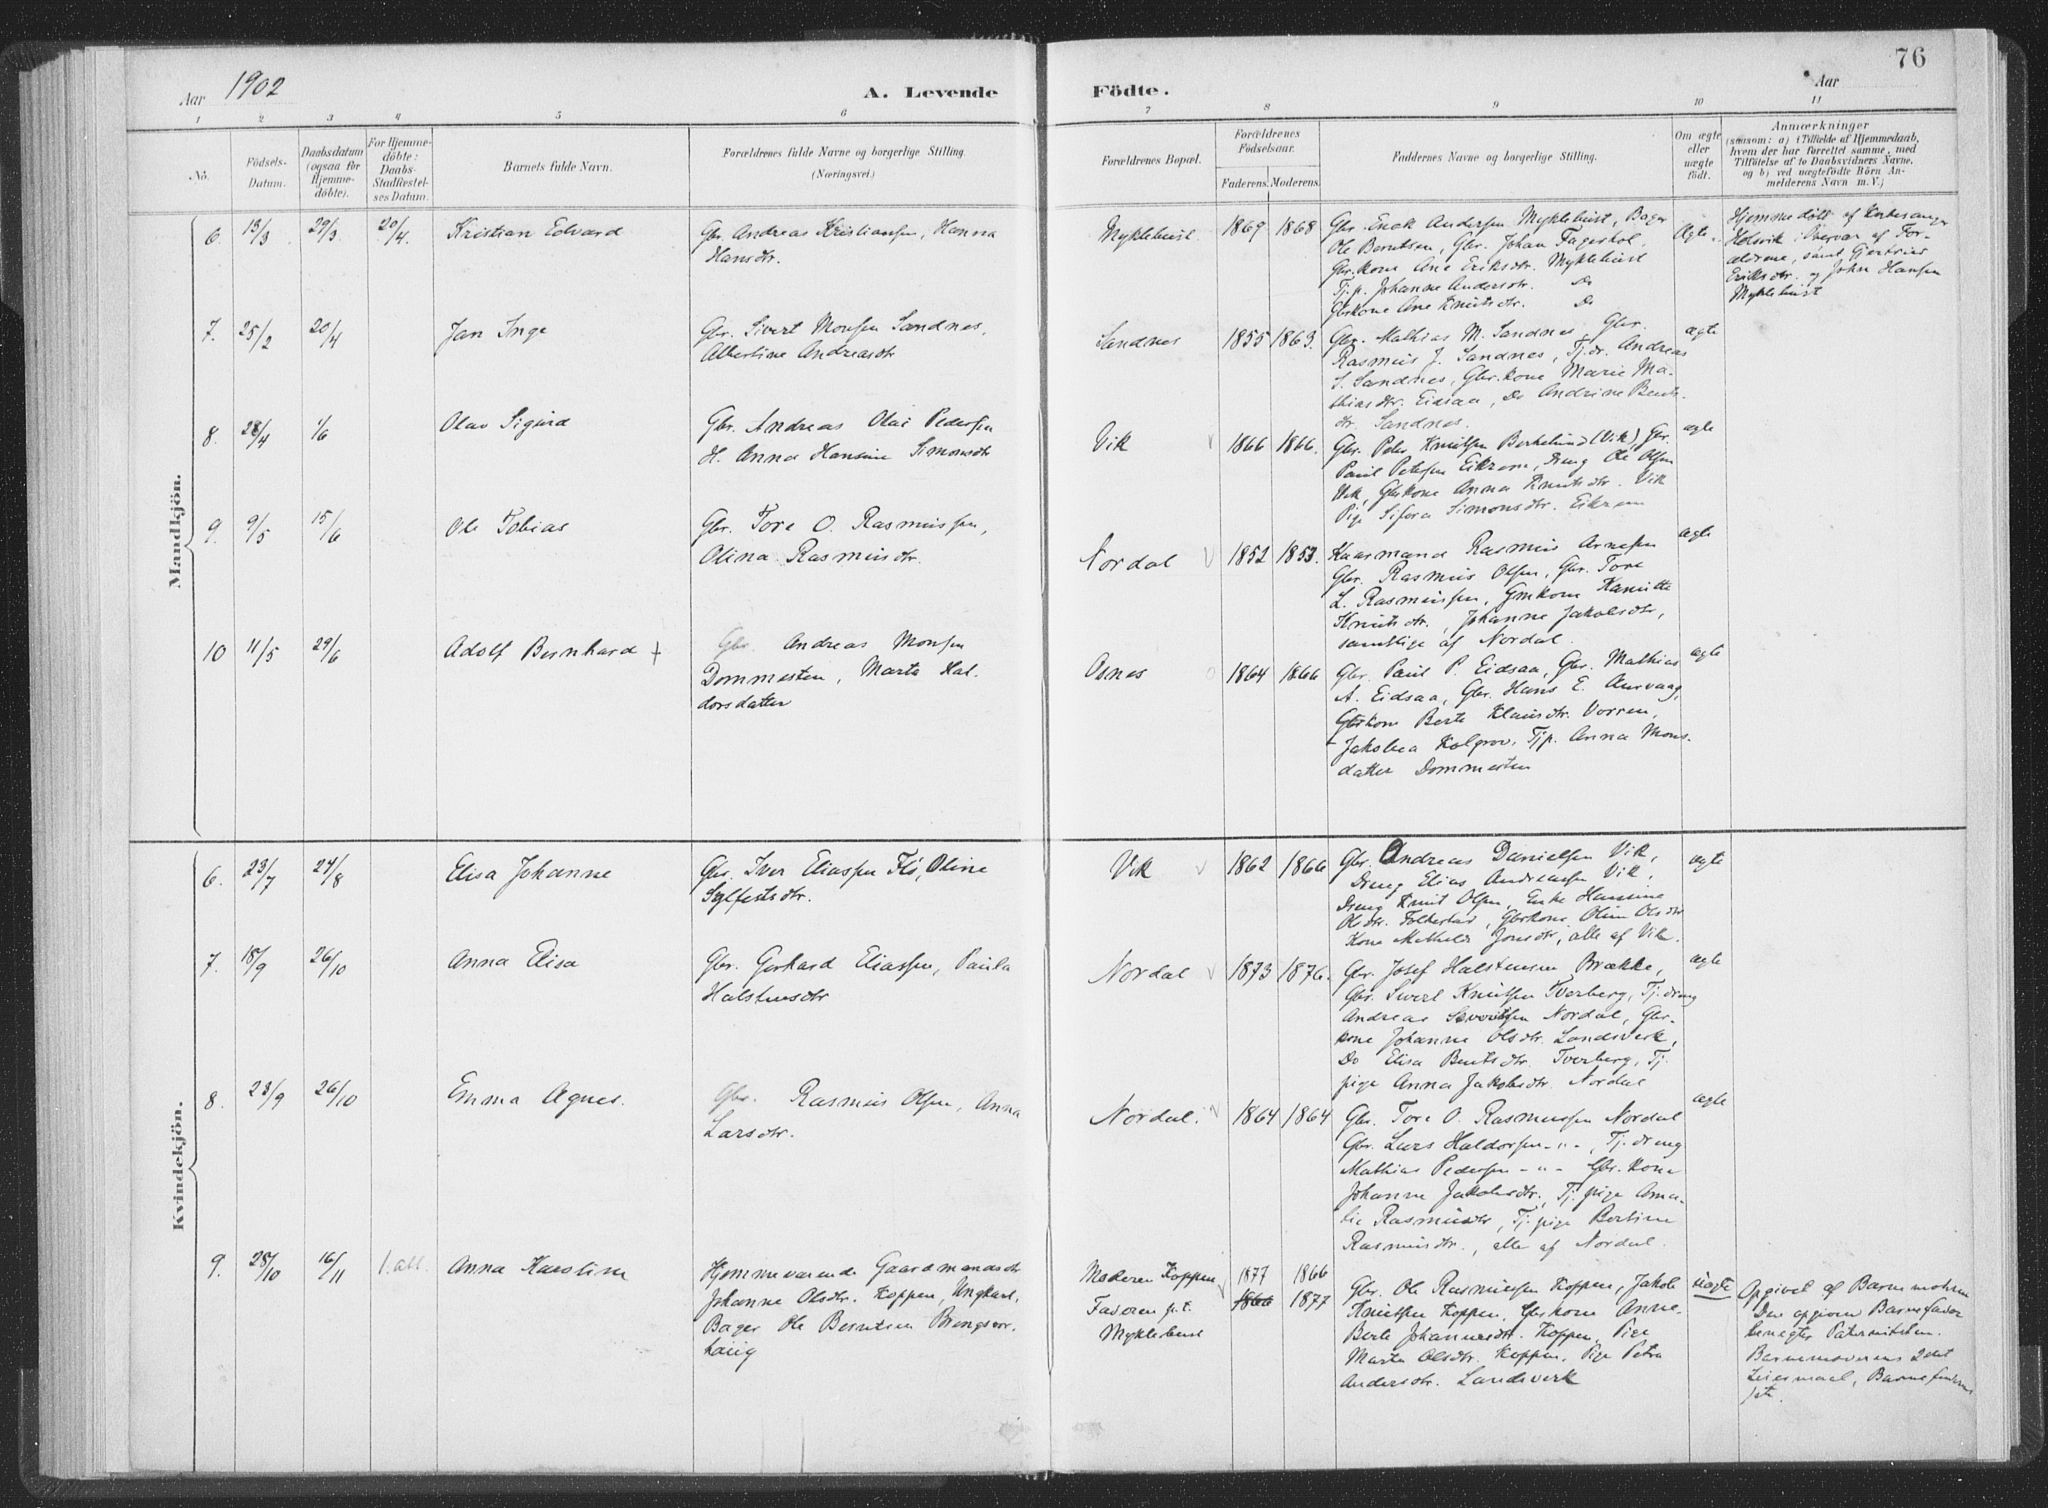 76
Aar 1902
A. Levende
Födte.
Aar
1 2 3 4 5 6 7 8 9 10 11
No.
Födsels-Datum.
Daabsdatum (ogsaa for Hjemme-döbte).
For Hjemme-döbte: Daabs-Stadfæstel-ses Datum.
Barnets fulde Navn.
Forældrenes fulde Navne og borgerlige Stilling.
(Næringsvei.)
Forældrenes Bopæl.
Forældrenes Födselsaar.
Faderens. Moderens.
Faddernes Navne og borgerlige Stilling.
Om ægte eller uægte födt.
Anmærkninger
(saasom: a) i Tilfælde af Hjemmedaab,
hvem der har forrettet samme, med
Tilföielse af to Daabsvidners Navne.
og b) ved uægtefödte Börn An-
melderens Navn m. V.)
Mandkjön.
6. 13/3 29/3 20/4. Kristian Edvard
Gbr. Andreas Kristiansen, Hanna
Hansdtr.
Myklebust 1869 1868
Gbr. Enok Andersen Myklebust, Bager
Ole Berntsen, Gbr. Johan Fagerhol,
Gbr.kone Ane Eriksdtr. Myklebust
Tj.p. Johanne Andersdtr. Do
Gbrkone Ane Knutsdtr. Do
Ægte
Hjemmedöbt af
Holsvik i Overvær af For-
ældrene, samt Gjertrud
Eriksdtr. og John Hansen
Myklebust
7. 25/2 20/4 Jan Inge
Gbr. Sivert Monsen Sandnes,
Albertine Andreasdtr
Sandnes 1855 1863.
Gbr. Mathias M. Sandnes, Gbr.
Rasmus J. Sandnes, Tj.dr. Andreas
S. Sandnes, Gbr.kone Marie Ma-
thiasdtr. Eidsaa, Do Andrine Bents-
dtr. Sandnes.
ægte
8. 28/4 1/6 Olav Sigurd
Gbr. Andreas Olai Pedersen
H. Anna Hansine Simonsdtr
Vik 1866 1866.
Gbr. Peter Knutsen Berkelund (Vik), Gbr.
Paul Petersen Eikrem, Dreng Ole Olsen
Vik, Gbrkone Anna Knutsdtr. Vik
Pige Sifora Simonsdtr. Eikrem
ægte
9. 9/5 15/6 Ole Tobias
Gbr. Tore O. Rasmussen,
Olina Rasmusdtr.
Nordal 1852 1853.
Kaarmand Rasmus Arnesen
Gbr. Rasmus Olsen, Gbr. Tore
L. Rasmussen, Gmkone Kanutte
Knutsdtr., Johanne Jakobsdtr,
samtlige af Nordal.
ægte
10 11/5 29/6 Adolf Bernhard +
Gbr. Andreas Monsen
Dommesten, Marta Hal-
dorsdatter
Osnes 1864 1866
Gbr. Paul P. Eidsaa, Gbr. Mathias
A. Eidsaa, Gbr. Hans E. Aurvaag,
Gbrkone Berte Klausdtr. Vorren,
Jakobea Kalgrov, Tjp. Anna Mons-
datter Dommesten
ægte
Kvindekjön.
6. 23/7 24/8 Elisa Johanne
Gbr. Iver Eliassen Flö, Oline
Sylfestsdtr.
Vik 1862 1866
Gbr. Andreas Danielsen Vik,
Dreng Elias Andreassen Vik,
Dreng Knut Olsen, Enke Hansine
Olsdtr. Folkestad, Gbrkone Oline Olsdtr
Kone Mathilde Jonsdtr, alle af Vik.
ægte
7. 18/9 26/10 Anna Elisa
Gbr. Gerhard Eliassen, Paula
Halstensdtr
Nordal 1873 1876.
Gbr. Josef Halstensen Brække,
Gbr. Sivert Knutsen Tverberg, Tj.dreng
Andreas Severitsen Nordal, Gbr-
kone Johanne Olsdtr. Landsverk,
Do Elisa Bentsdtr. Tverberg, Tj.
pige Anna Jakobsdtr. Nordal
ægte
8. 23/9 26/10 Emma Agnes.
Gbr. Rasmus Olsen, Anna
Larsdtr.
Nordal. 1864 1864
Gbr. Tore O. Rasmussen Nordal
Gbr. Lars Haldorsen -"-, Tj.dreng
Mathias Pedersen -"- Gbr. kone
Johanne Jakobsdtr, Tj.pige Ama-
lie Rasmusdtr, Tj.pige Bertine
Rasmusdtr., alle af Nordal.
ægte
9. 28/10 16/11 1.all. Anna Karoline
Hjemmeværende Gaardmandsdtr
Johanne Olsdtr. Koppen, Ungkarl,
Bager Ole Berntsen
Moderen Koppen
Faderen p.t.
Myklebust
1877 1866
1866 1877
Gbr. Ole Rasmussen Koppen, Jakob
Knutsen Koppen, Gbrkone Anne
Berte Johannesdtr. Koppen, Pige
Marta Olsdtr. Koppen, Pige Petra
Andersdtr. Landsverk
uægte
Opgivet af Barnemoderen
Den opgivne Barnefader
benegter Paterniteten.
Barnemoderens 2det
Leiermaal, Barnefaderens
1ste